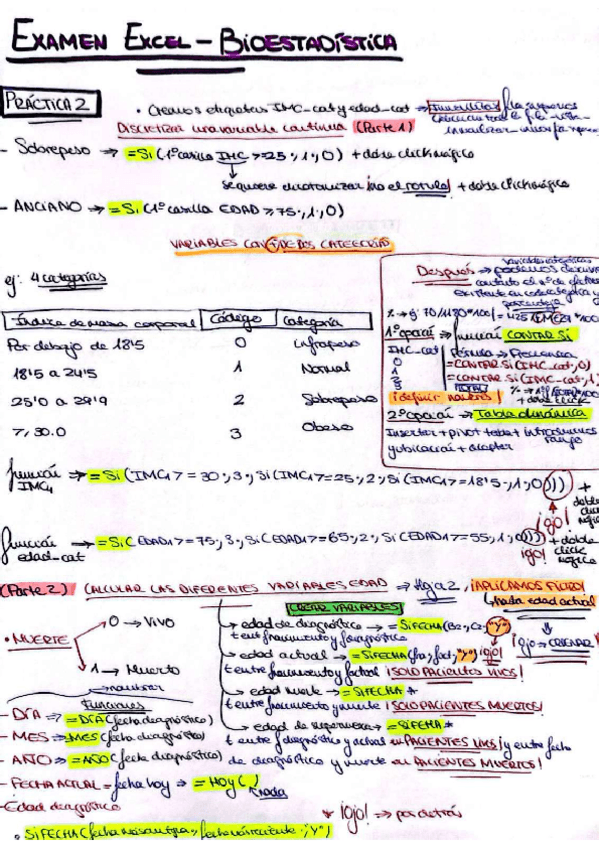 EXAMEN EXCEL - BIOESTADÍSTICA
PRÁCTICA 2
• Creamos etiquetas IMC_cat y edad_cat →
Discretizar una variable continua (Parte 1)
- Sobrepeso → =Si(1ª casilla IMC >25;1;0) + doble click mágico
se quiere dicotomizar ¡no el rótulo! + doble click mágico
- ANCIANO → =Si(1ª casilla EDAD >75;1;0)
VARIABLES CON + DE DOS CATEGORÍAS
ej: 4 categorías
Índice de masa corporal Código Categoría
Por debajo de 18'5 0 Infrapeso
18'5 a 24'5 1 Normal
25'0 a 29'9 2 Sobrepeso
7,30.0 3 Obeso
Después → podemos
variables categóricas
1ª opción → función CONTAR SI
IMC_cat Fórmula → Frecuencia
0 =CONTAR SI(IMC_cat;0)
1 =CONTAR SI(IMC_cat;1)
3
TOTAL
+ doble click
¡definir nombres!
2ª opción → Tabla dinámica
Insertar + pivot table + introducimos rango
y ubicación + aceptar
función IMC4 → =Si(IMC>=30;3;Si(IMC>=25;2;Si(IMC>=18'5;1;0))) + doble click mágico
¡ojo!
función edad_cat → =Si(EDAD>=75;3;Si(EDAD>=65;2;Si(EDAD>=55;1;0))) + doble click mágico
¡ojo!
(Parte 2) CALCULAR LAS DIFERENTES VARIABLES EDAD → Hoja 2, ¡APLICAMOS FILTRO!
↳ para edad actual
CREAR VARIABLES
• MUERTE
0 → Vivo
1 → Muerto
→ edad de diagnóstico → =SIFECHA(B2;C2;"Y")
t entre fnacimiento y fdiagnóstico
¡ojo! → ORDENAR
→ edad actual → =SIFECHA(fna;fact;"Y") ¡ojo!
t entre fnacimiento y factual ¡SOLO PACIENTES VIVOS!
→ edad muerte → =SIFECHA *
t entre fnacimiento y fmuerte ¡SOLO PACIENTES MUERTOS!
→ edad de supervivencia → =SIFECHA *
t entre fdiagnóstico y actual en PACIENTES VIVOS y entre fecha
de diagnóstico y muerte en ¡PACIENTES MUERTOS!
Funciones
- DÍA → =DIA(fecha diagnóstico)
- MES → =MES(fecha diagnóstico)
- AÑO → =AÑO(fecha diagnóstico)
- FECHA ACTUAL = fecha hoy → =HOY( )
↳ nada
- Edad diagnóstico
• SIFECHA(fecha más antigua; fecha más reciente;"Y")
* ¡ojo! → por detrás